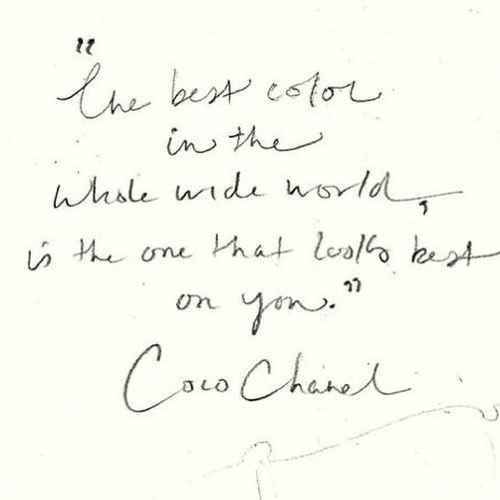 "The best color
in the
whole wide world,
is the one that looks best
on you."
Coco Chanel